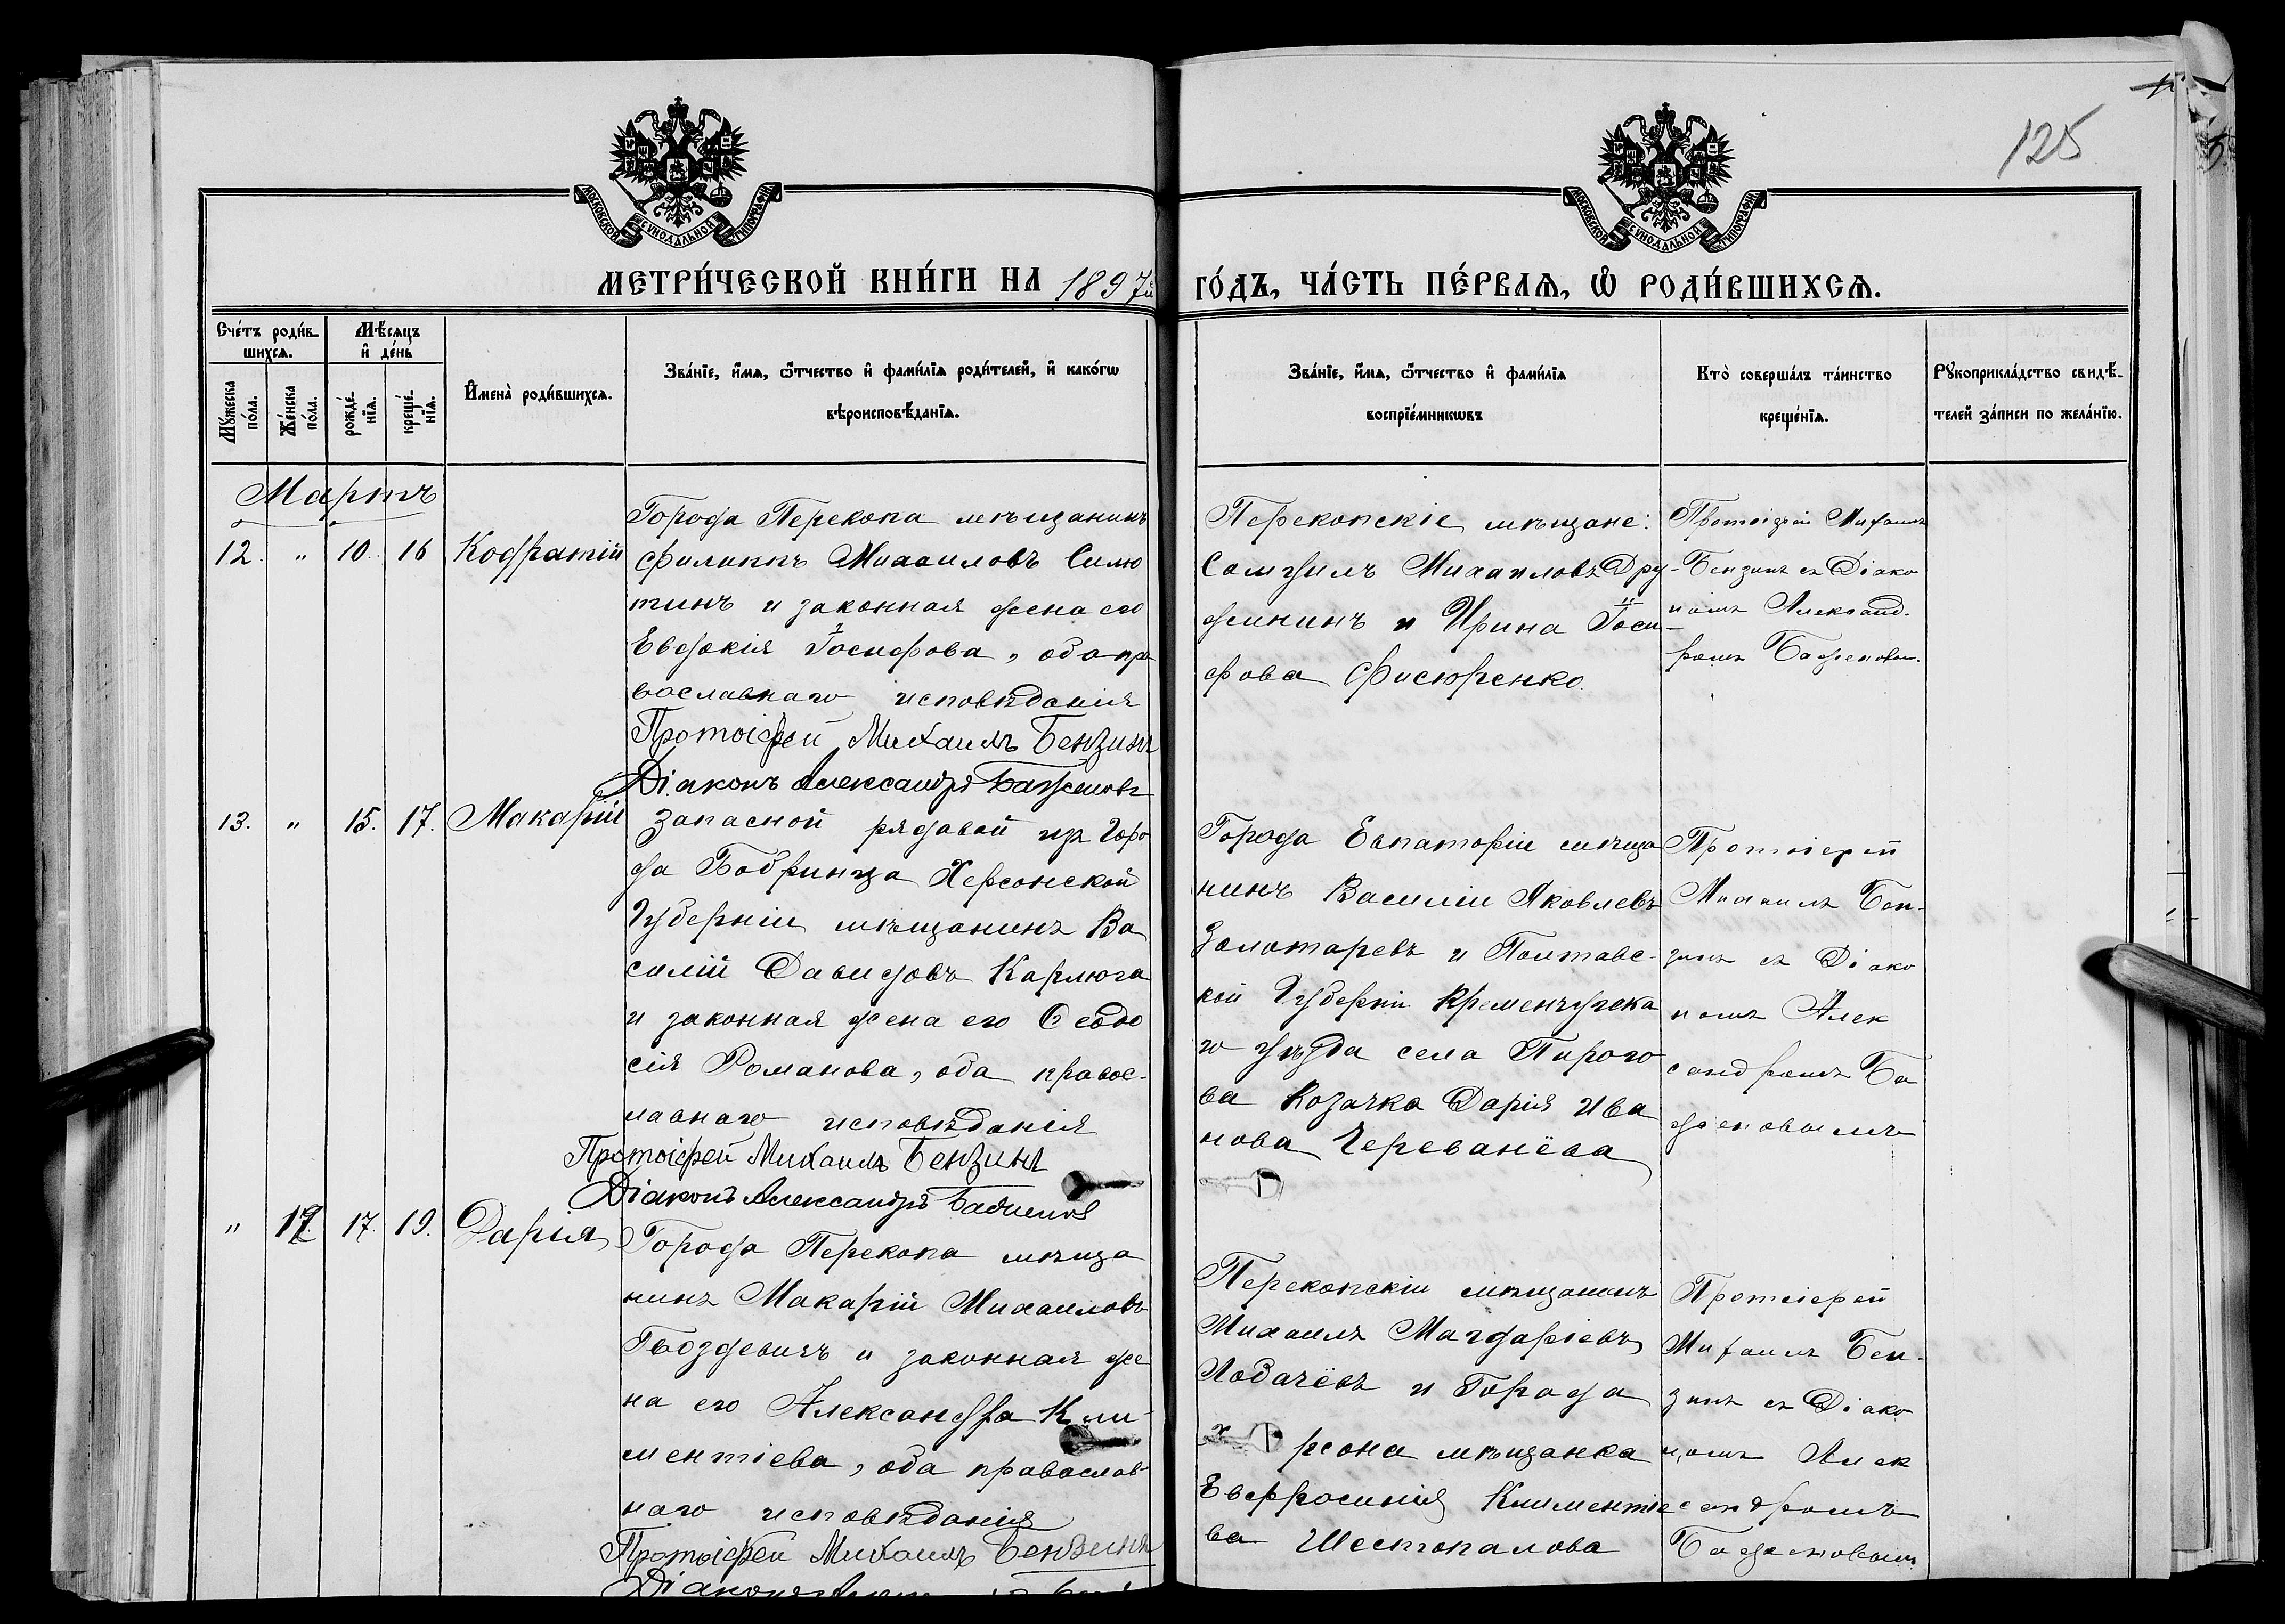 125
МОСКОВСКОЙ СѴНОДАЛЬНОЙ ТИПОГРАФІИ
МОСКОВСКОЙ СѴНОДАЛЬНОЙ ТИПОГРАФІИ
МЕТРИ́ЧЕСКОЙ КНИ́ГИ НА 1897й ГО́ДЪ, ЧА́СТЬ ПЕ́РВАѦ, Ѡ҆ РОДИ́ВШИХСѦ.
Сче́тъ роди́в-
шихсѧ.
Мꙋ́жеска
по́ла.
Же́нска
по́ла.
Мѣ́сѧцъ
и҆ де́нь
рожде́-
нїѧ.
креще́-
нїѧ.
И҆мена̀ роди́вшихсѧ.
Зва́нїе, и҆́мѧ, ѻ҆́тчество и҆ фами́лїѧ роди́телей, и҆ како́гѡ
вѣроисповѣ́данїѧ.
Зва́нїе, и҆́мѧ, ѻ҆́тчество и҆ фами́лїѧ
воспрїе́мникѡвъ
Кто̀ соверша́лъ та́инство
креще́нїѧ.
Рꙋкоприкла́дство свидѣ́-
телей за́писи по жела́нїю.
Мартъ
12. " 10. 16 Кодратій
Города Перекопа мѣщанинъ
Филиппъ Михаиловъ Силю
тинъ и законная жена его
Евдокія Іосифова, оба пра
вославнаго исповѣданія
Протоіерей Михаилъ Бензинъ
Діаконъ Александръ Баженовъ
Перекопскіе мѣщане:
Самуилъ Михаиловъ Дру-
жининъ и Ирина Іоси-
фова Фисюренко
Протоіерей Михаилъ
Бензинъ съ Діако
номъ Александ-
ромъ Баженовым.
13. " 15. 17. Макарій
Запасной рядовой из Горо
да Бобринца Херсонской
Губерніи мѣщанинъ Ва
силій Давидовъ Карлюга
и законная жена его Ѳеодо
сія Романова, оба правос-
лавнаго исповѣданія
Протоіерей Михаилъ Бензинъ
Діаконъ Александръ Баженов
Города Евпаторіи мѣща
нинъ Василій Яковлевъ
Золотаревъ и Полтавс-
кой Губерніи Кременчугска
го уѣзда села Пирого
ва Козачка Дарія Ива
нова Череванёва
Протоіерей
Михаилъ Бен-
зинъ съ Діако
номъ Алек
сандромъ Ба
женовымъ
" 12. 17. 19. Дарія
Города Перекопа мѣща
нинъ Макарій Михаиловъ
Гвоздевичъ и законная же
на его Александра Кли-
ментіева, оба православ-
наго исповѣданія
Протоіерей Михаилъ Бензинъ
Перекопскій мѣщанинъ
Михаилъ
Лобачёвъ и Города
Х рсона мѣщанка
Евфросинія Климентіе
ва Шестопалова
Протоіерей
Михаилъ Бен-
зинъ съ Діако
номъ Алек
сандромъ
Баженовым